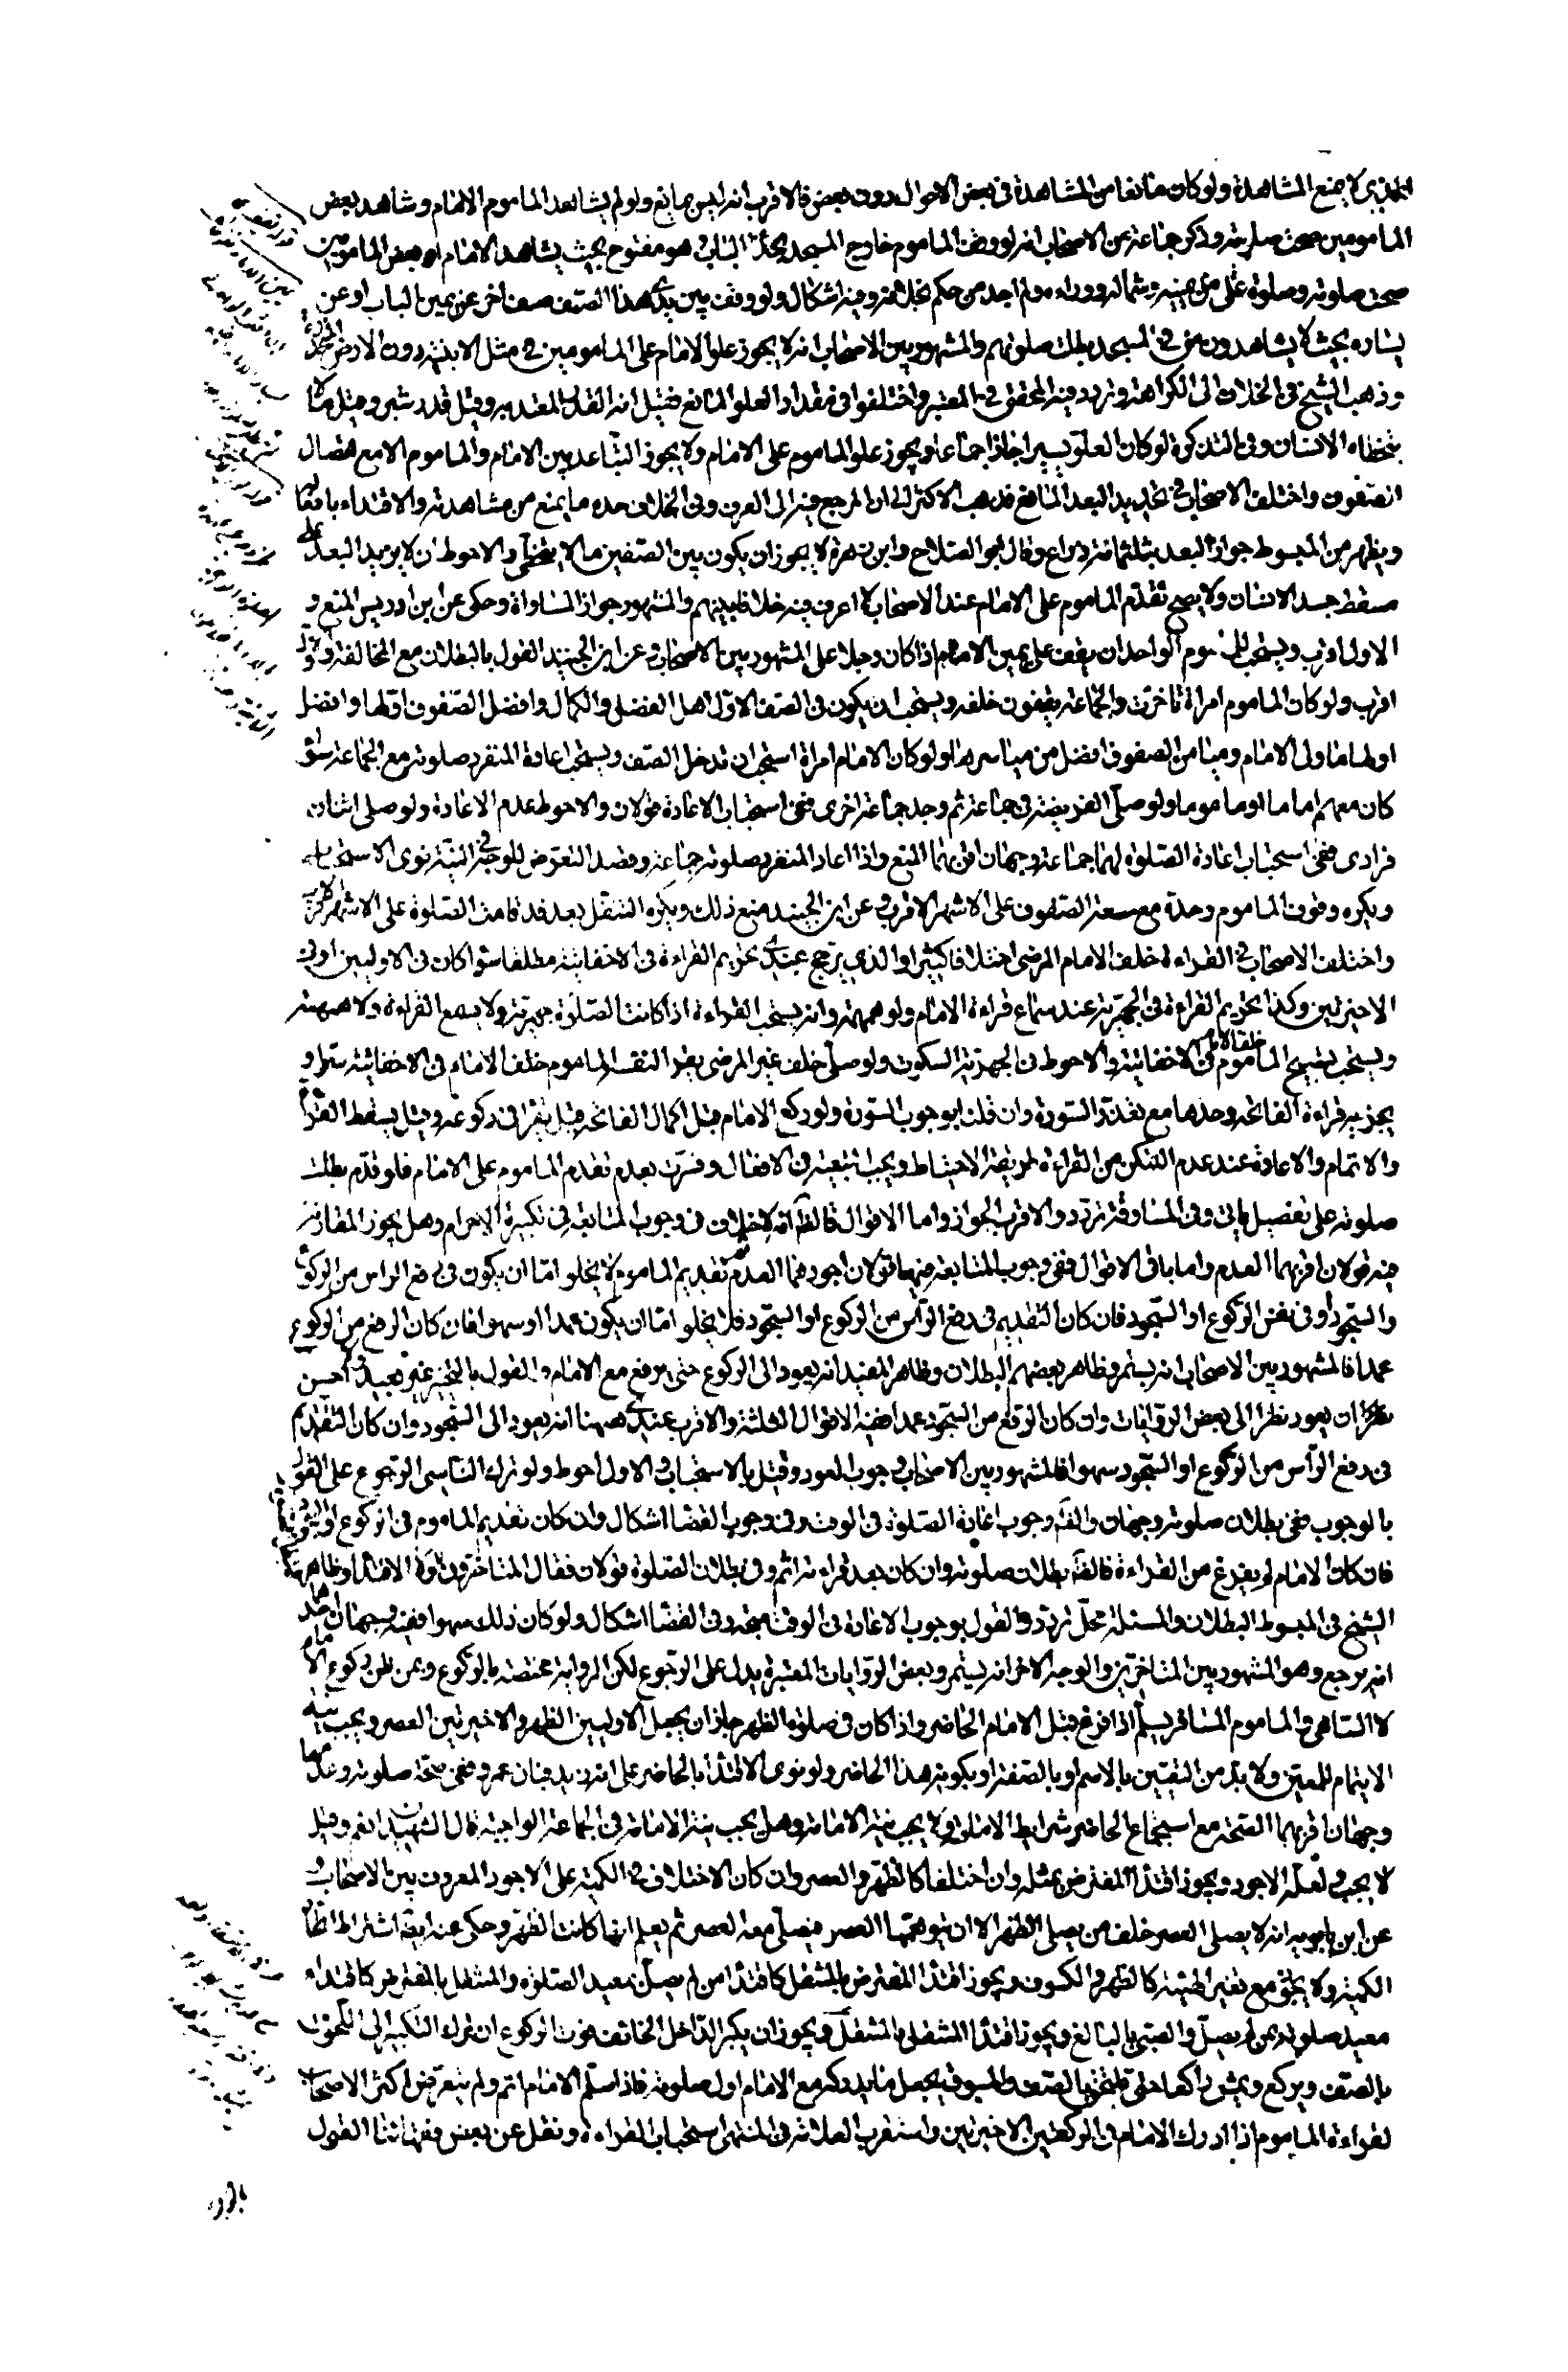 الذي لا يمنع المشاهدة ولو كان مانعا من المشاهدة في بعض الاحوال دون بعض فالاقرب انه ليس بمانع ولو لم يشاهد الماموم الامام وشاهد بعض
المامومين صحت صلوته وذكر جماعة من الاصحاب انه لو وقف الماموم خارج المسجد بحذاء الباب وهو مفتوح بحيث يشاهد الامام او بعض المامومين
صحت صلوته وصلوة من على يمينه وشماله ووراءه ولم اجد من حكم بخلافه وفيه اشكال ولو وقف بين يدي هذا الصف صف اخر عن يمين الباب او عن
يساره بحيث لا يشاهدون من في المسجد بطلت صلوتهم والمشهور بين الاصحاب انه لا يجوز علو الامام على المامومين في مثل الابنية دون الارض المنحدرة
وذهب الشيخ في الخلاف الى الكراهة وتردد فيه المحقق في المعتبر واختلفوا في مقدار العلو المانع فقيل انه القدر المعتد به وقيل قدر شبر وقيل ما لا
يتخطاه الانسان وفي التذكرة لو كان العلو يسيرا جاز اجماعا ويجوز علو الماموم على الامام ولا يجوز التباعد بين الامام والماموم الا مع اتصال
الصفوف واختلف الاصحاب في تحديد البعد المانع فذهب الاكثر الى ان المرجع فيه الى العرف وفي الخلاف حده ما يمنع من مشاهدته والاقتداء بافعاله
ويظهر من المبسوط جواز البعد بثلثمائة ذراع وقال ابو الصلاح وابن زهرة لا يجوز ان يكون بين الصفين ما لا يتخطى والاحوط ان لا يزيد البعد على
مسقط جسد الانسان ولا يصح تقدم الماموم على الامام عند الاصحاب لا اعرف فيه خلافا بينهم والمشهور جواز المساواة وحكى عن ابن ادريس المنع و
الاول اقرب ويستحب للماموم الواحد ان يقف على يمين الامام اذا كان رجلا على المشهور بين الاصحاب وعن ابن الجنيد القول بالبطلان مع المخالفة والاول
اقرب ولو كان الماموم امراة تاخرت والجماعة يقفون خلفه ويستحب ان يكون في الصف الاول اهل الفضل والكمال وافضل الصفوف اولها وافضل
اولها ما ولى الامام وميامن الصفوف افضل من مياسرها ولو كان الامام امراة استحب ان تدخل الصف ويستحب اعادة المنفرد صلوته مع الجماعة سواء
كان معهم اماما او ماموما ولو صلى الفريضة في جماعة ثم وجد جماعة اخرى ففي استحباب الاعادة قولان والاحوط عدم الاعادة ولو صلى اثنان
فرادى ففي استحباب اعادة الصلوة لهما جماعة وجهان اقربهما المنع واذا اعاد المنفرد صلوته جماعة وقصد التعرض للوجه في النية نوى الاستحباب
ويكره وقوف الماموم وحده مع سعة الصفوف على الاشهر الاقرب وعن ابن الجنيد منع ذلك ويكره التنفل بعد قد قامت الصلوة على الاشهر الاقرب
واختلف الاصحاب في القراءة خلف الامام المرضى اختلافا كثيرا والذي يترجح عندي تحريم القراءة في الاخفاتية مطلقا سواء كان في الاوليين او في
الاخيرتين وكذا تحريم القراءة في الجهرية عند سماع قراءة الامام ولو همهمة وانه يستحب القراءة اذا كانت الصلوة جهرية ولا يسمع القراءة ولا همهمة
ويستحب تسبيح الماموم خلف الامام في الاخفاتية والاحوط في الجهرية السكوت ولو صلى خلف غير المرضى يقرا لنفسه الماموم خلف الامام في الاخفاتية سرا و
يجزيه قراءة الفاتحة وحدها مع تعذر السورة وان قلنا بوجوب السورة ولو ركع الامام قبل اكمال الفاتحة قيل يقرا في ركوعه وقيل يسقط القراءة
والاتمام والاعادة عند عدم التمكن من القراءة طريقة الاحتياط ويجب تبعيته في الافعال وفسرت بعدم تقدم الماموم على الامام فلو تقدم بطلت
صلوته على تفصيل ياتي وفي المساوقة تردد والاقرب الجواز واما الاقوال فالظاهر انه لا خلاف في وجوب المتابعة في تكبيرة الاحرام وهل يجوز المقارنة
فيه قولان اقربهما العدم واما باقي الاقوال ففي وجوب المتابعة فيها قولان اجودهما العدم ثم تقديم الماموم لا يخلو اما ان يكون في رفع الراس من الركوع
والسجود او في نفس الركوع او السجود فان كان التقديم في رفع الراس من الركوع او السجود فلا يخلو اما ان يكون عمدا او سهوا فان كان الرفع من الركوع
عمدا فالمشهور بين الاصحاب انه يستمر وظاهر بعضهم البطلان وظاهر المفيد انه يعود الى الركوع حتى يرفع مع الامام والقول بالتخيير غير بعيد واحسن
ان يعود نظرا الى بعض الروايات وان كان الرفع من السجود عمدا ففيه الاقوال الثلثة والاقرب عندي ههنا انه يعود الى السجود وان كان التقدم
في رفع الراس من الركوع او السجود سهوا فالمشهور بين الاصحاب وجوب العود وقيل بالاستحباب والاول احوط ولو ترك الناسي الرجوع على القول
بالوجوب ففي بطلان صلوته وجهان والظاهر وجوب اعادة الصلوة في الوقت وفي وجوب القضا اشكال وان كان تقديم الماموم في الركوع او السجود
فان كان الامام لم يفرغ من القراءة فالظاهر بطلان صلوته وان كان بعد قراءته اثم وفي بطلان الصلوة قولان فقال المتاخرون لا وظاهر
الشيخ في المبسوط البطلان والمسئلة محل تردد والقول بوجوب الاعادة في الوقت متجه وفي القضا اشكال ولو كان ذلك سهوا ففيه وجهان احدهما
انه يرجع وهو المشهور بين المتاخرين والوجه الاخر انه يستمر وبعض الروايات المعتبرة يدل على الرجوع لكن الرواية مختصة بالركوع وبمن ظن ركوع الامام
لا الساهي والماموم المسافر يسلم اذا فرغ قبل الامام الحاضر واذا كان في صلوة الظهر جاز ان يجعل الاوليين الظهر والاخيرتين العصر ويجب نية
الايتمام للمعين ولا بد من التعيين بالاسم او بالصفة او بكونه هذا الحاضر ولو نوى الاقتداء بالحاضر على انه زيد فبان عمرو ففي صحة صلوته وعدمها
وجهان اقربهما الصحة مع استجماع الحاضر شرايط الامامة ولا يجب نية الامامة وهل يجب نية الامامة في الجماعة الواجبة قال الشهيدان نعم وقيل
لا يجب ولعله الاجود ويجوز اقتداء المفترض بمثله وان اختلفا كالظهر والعصر وان كان الاختلاف في الكمية على الاجود المعروف بين الاصحاب و
عن ابن بابويه انه لا يصلى العصر خلف من يصلى الظهر الا ان يتوهمها العصر فيصلى معه العصر ثم يعلم انها كانت الظهر وحكى عنه ايضا اشتراط اتحاد
الكمية ولا يجوز مع تغير الهيئة كالظهر والكسوف ويجوز اقتداء المفترض بالمتنفل كاقتداء من لم يصل بمعيد الصلوة والمتنفل بالمفترض كاقتداء
معيد صلوته بمن لم يصل والصبي بالبالغ ويجوز اقتداء المتنفل بالمتنفل ويجوز ان يكبر الداخل الخائف فوت الركوع ان ترك التكبير الى اللحوق
بالصف ويركع ويمشي راكعا حتى يلتحق بالصف والمسبوق يجعل ما يدركه مع الامام اول صلوته فاذا سلم الامام اتم ولم يتعرض اكثر الاصحاب
لقراءة الماموم اذا ادرك الامام في الركعتين الاخيرتين واستقرب العلامة في المنتهى استحباب القراءة ونقل عن بعض فقهائنا القول